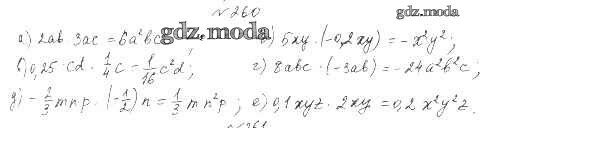 №260
gdz.moda
а) 2ab 3ac = 6a²bc gdz.moda в) 5xy · (-0,2xy) = -x²y²;
б) 0,25 · cd · 1/4 c = 1/16 c²d; г) 8abc · (-3ab) = -24a²b²c;
д) -2/3 mnp · (-1/2) n = 1/3 mn²p; е) 0,1xyz · 2xy = 0,2x²y²z.
№261